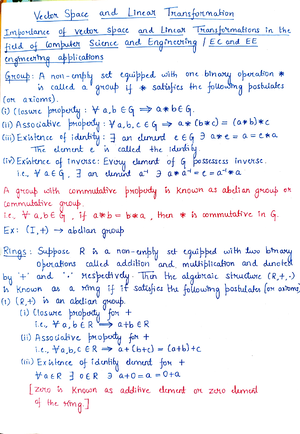 Vector Space and Linear Transformation
Importance of vector space and Linear Transformations in the
field of Computer Science and Engineering / EC and EE
engineering applications
Group : A non-empty set equipped with one binary operation *
is called a group if * satisfies the following postulates
(or axioms).
(i) Closure property : ∀ a,b ∈ G ⟹ a*b ∈ G.
(ii) Associative property : ∀ a,b,c ∈ G ⟹ a*(b*c) = (a*b)*c
(iii) Existence of identity : ∃ an element e ∈ G ∋ a*e = a = e*a
The element e is called the identity.
(iv) Existence of inverse : Every element of G possesses inverse.
i.e., ∀ a ∈ G, ∃ an element a⁻¹ ∋ a*a⁻¹ = e = a⁻¹*a
A group with commutative property is known as abelian group or
commutative group.
i.e., ∀ a,b ∈ G, if a*b = b*a, then * is commutative in G.
Ex: (I,+) → abelian group
Rings : Suppose R is a non-empty set equipped with two binary
operations called addition and multiplication and denoted
by '+' and '.' respectively. Then the algebraic structure (R,+,.)
is known as a ring if it satisfies the following postulates (or axioms)
(1) (R,+) is an abelian group.
(i) Closure property for +
i.e., ∀ a,b ∈ R ⟹ a+b ∈ R
(ii) Associative property for +
i.e., ∀ a,b,c ∈ R ⟹ a+(b+c) = (a+b)+c
(iii) Existence of identity element for +
∀ a ∈ R ∃ 0 ∈ R ∋ a+0 = a = 0+a
[zero is known as additive element or zero element
of the ring.]